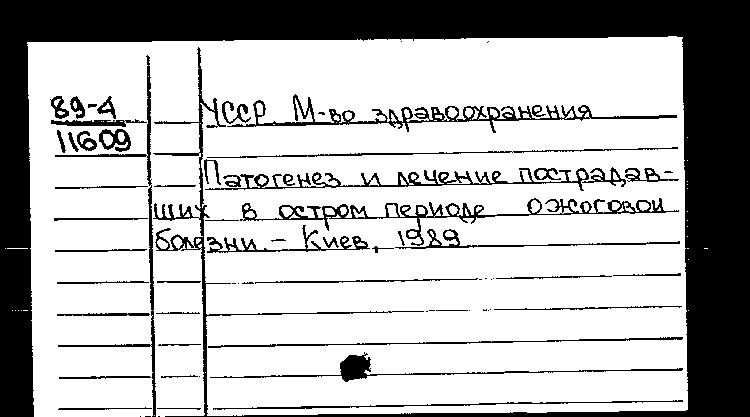 89-4
11609
УССР М-во здравоохранения
Патогенез и лечение пострадав-
ших в остром периоде ожоговой
болезни. - Киев, 1989